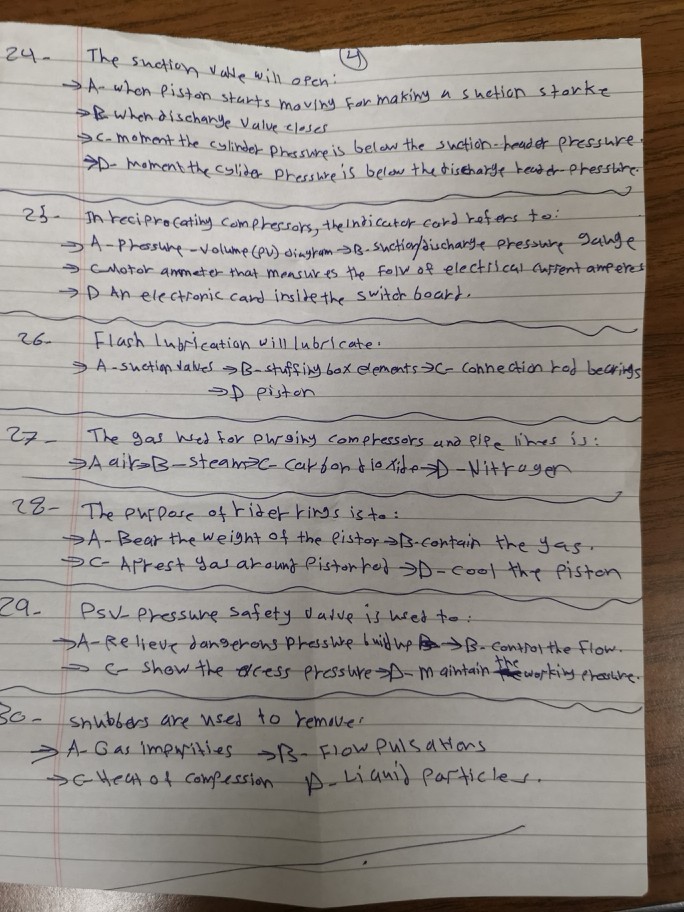 4
24- The suction valve will open:
→ A- when Piston starts moving for making a suction storke
→ B- when dischange value closes
→ C- moment the cylinder pressure is below the suction-header pressure.
→ D- moment the cylider pressure is below the discharge header pressure.
25- In reciprocating compressors, the Indicator card refers to:
→ A- Pressure-volume (PV) diagram → B- suction/discharge pressure gauge
→ C- Motor ammeter that measures the folw of electrical current amperes
→ D An electronic card inside the switch board.
26- Flash lubrication will lubricate.
→ A- suction valves → B- stuffing box elements → C- Connection rod bearings
→ D piston
27- The gas used for purging compressors and pipe lines is:
→ A air → B- steam → C- Carbon dioxide → D- Nitrogen
28- The purpose of rider rings is to:
→ A- Bear the weight of the piston → B- contain the gas.
→ C- Arrest gas around Piston rod → D- cool the piston
29- PSV- Pressure safety valve is used to:
→ A- Relieve dangerous pressure buid up → B- control the flow.
→ C- show the excess pressure → D- maintain the working pressure.
30- snubbers are used to remove:
→ A- Gas impurities → B- Flow pulsations
→ C- Heat of compession D- Liquid particles.